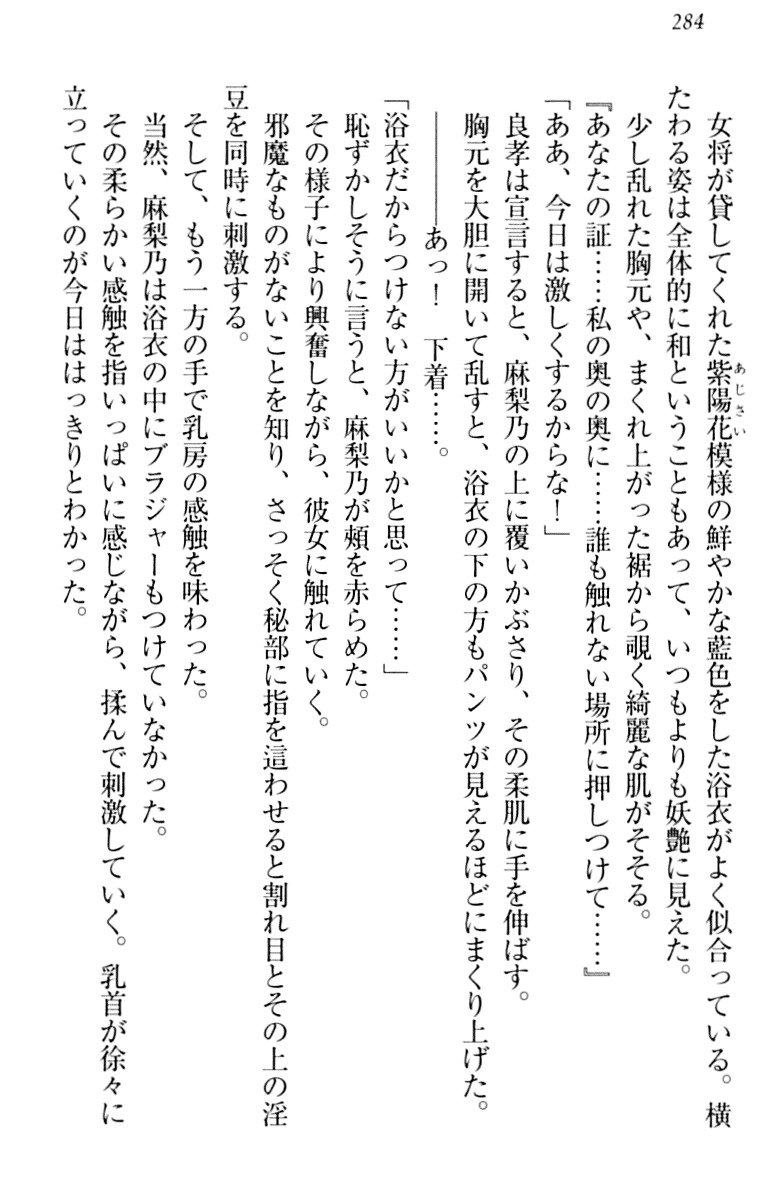 284
女将が貸してくれた紫陽花模様の鮮やかな藍色をした浴衣がよく似合っている。横
あじさい
たわる姿は全体的に和ということもあって、いつもよりも妖艶に見えた。
少し乱れた胸元や、まくれ上がった裾から覗く綺麗な肌がそそる。
『あなたの証……私の奥の奥に……誰も触れない場所に押しつけて……』
「ああ、今日は激しくするからな！」
良孝は宣言すると、麻梨乃の上に覆いかぶさり、その柔肌に手を伸ばす。
胸元を大胆に開いて乱すと、浴衣の下の方もパンツが見えるほどにまくり上げた。
――――あっ！　下着……。
「浴衣だからつけない方がいいかと思って……」
恥ずかしそうに言うと、麻梨乃が頬を赤らめた。
その様子により興奮しながら、彼女に触れていく。
邪魔なものがないことを知り、さっそく秘部に指を這わせると割れ目とその上の淫
豆を同時に刺激する。
そして、もう一方の手で乳房の感触を味わった。
当然、麻梨乃は浴衣の中にブラジャーもつけていなかった。
その柔らかい感触を指いっぱいに感じながら、揉んで刺激していく。乳首が徐々に
立っていくのが今日ははっきりとわかった。